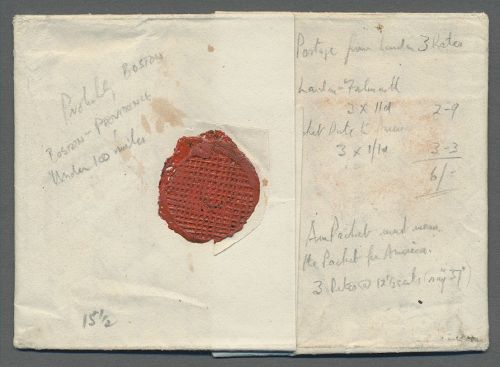 Probably BOSTON
BOSTON-PROVIDENCE
Under 100 miles
15½
Postage from London 3 Rates
London-Falmouth
3 x 11d 2-9
to
3 x 1/1d 3-3
6/-
Packet
the Packet for America.
3 Rates @ 12½ cents